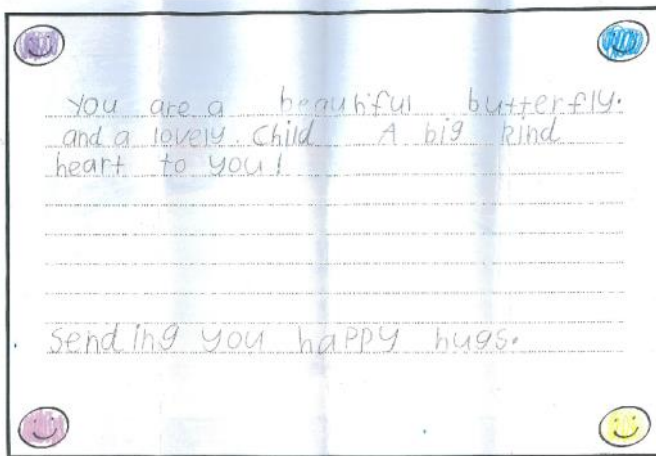 You are a beautiful butterfly.
and a lovely. Child A big kind
heart to you!
Sending you happy hugs.